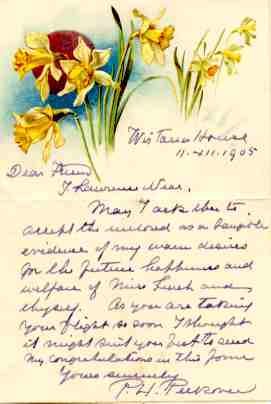 Wistaria House
11.XII.1905
Dear Friend
J Lawrence Near.
May I ask thee to
accept the enclosed as a tangible
evidence of my warm desires
for the future happiness and
welfare of Miss and
thyself. As you are taking
your flight so soon I thought
it might suit you best to send
my congratulations in this form
Yours sincerely
P. H. Peckover